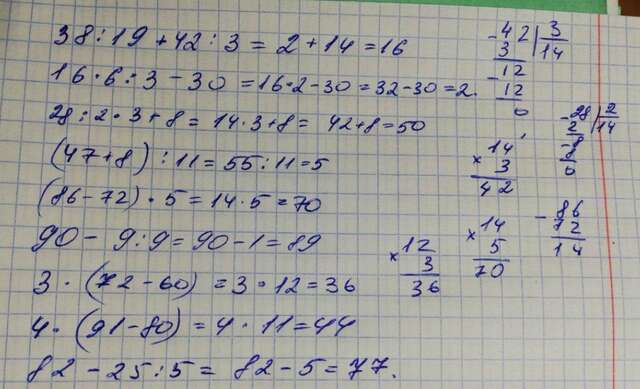 38 : 19 + 42 : 3 = 2 + 14 = 16
16 · 6 : 3 - 30 = 16 · 2 - 30 = 32 - 30 = 2.
28 : 2 · 3 + 8 = 14 · 3 + 8 = 42 + 8 = 50
(47 + 8) : 11 = 55 : 11 = 5
(86 - 72) · 5 = 14 · 5 = 70
90 - 9 : 9 = 90 - 1 = 89
3 · (72 - 60) = 3 · 12 = 36
4 · (91 - 80) = 4 · 11 = 44
82 - 25 : 5 = 82 - 5 = 77.
- 42 | 3
3 | 14
- 12
12
0
- 28 | 2
2 | 14
- 8
8
0
× 14
3
42
× 12
3
36
× 14
5
70
- 86
72
14